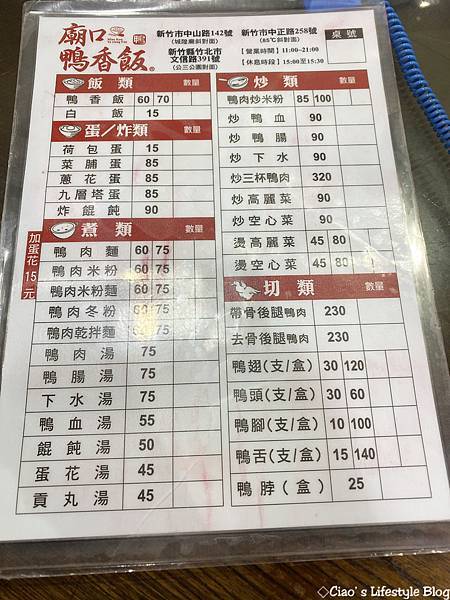 廟口鴨香飯
新竹市中山路142號
(城隍廟斜對面)
新竹縣竹北市
文信路391號
(公三公園對面)
新竹市中正路258號
(85℃斜對面)
【營業時間】11:00~21:00
【休息時段】15:00至15:30
桌號
飯類 數量
鴨香飯 60 70
白飯 15
蛋/炸類 數量
荷包蛋 15
菜脯蛋 85
蔥花蛋 85
九層塔蛋 85
炸餛飩 90
煮類 數量
加蛋花15元
鴨肉麵 60 75
鴨肉米粉 60 75
鴨肉米粉麵 60 75
鴨肉冬粉 60 75
鴨肉乾拌麵 60 75
鴨肉湯 75
鴨腸湯 75
下水湯 75
鴨血湯 55
餛飩湯 50
蛋花湯 45
貢丸湯 45
炒類 數量
鴨肉炒米粉 85 100
炒鴨血 90
炒鴨腸 90
炒下水 90
炒三杯鴨肉 320
炒高麗菜 90
炒空心菜 90
燙高麗菜 45 80
燙空心菜 45 80
切類 數量
帶骨後腿鴨肉 230
去骨後腿鴨肉 230
鴨翅(支/盒) 30 120
鴨頭(支/盒) 30 60
鴨腳(支/盒) 10 100
鴨舌(支/盒) 15 140
鴨脖(盒) 25
◇Ciao's Lifestyle Blog